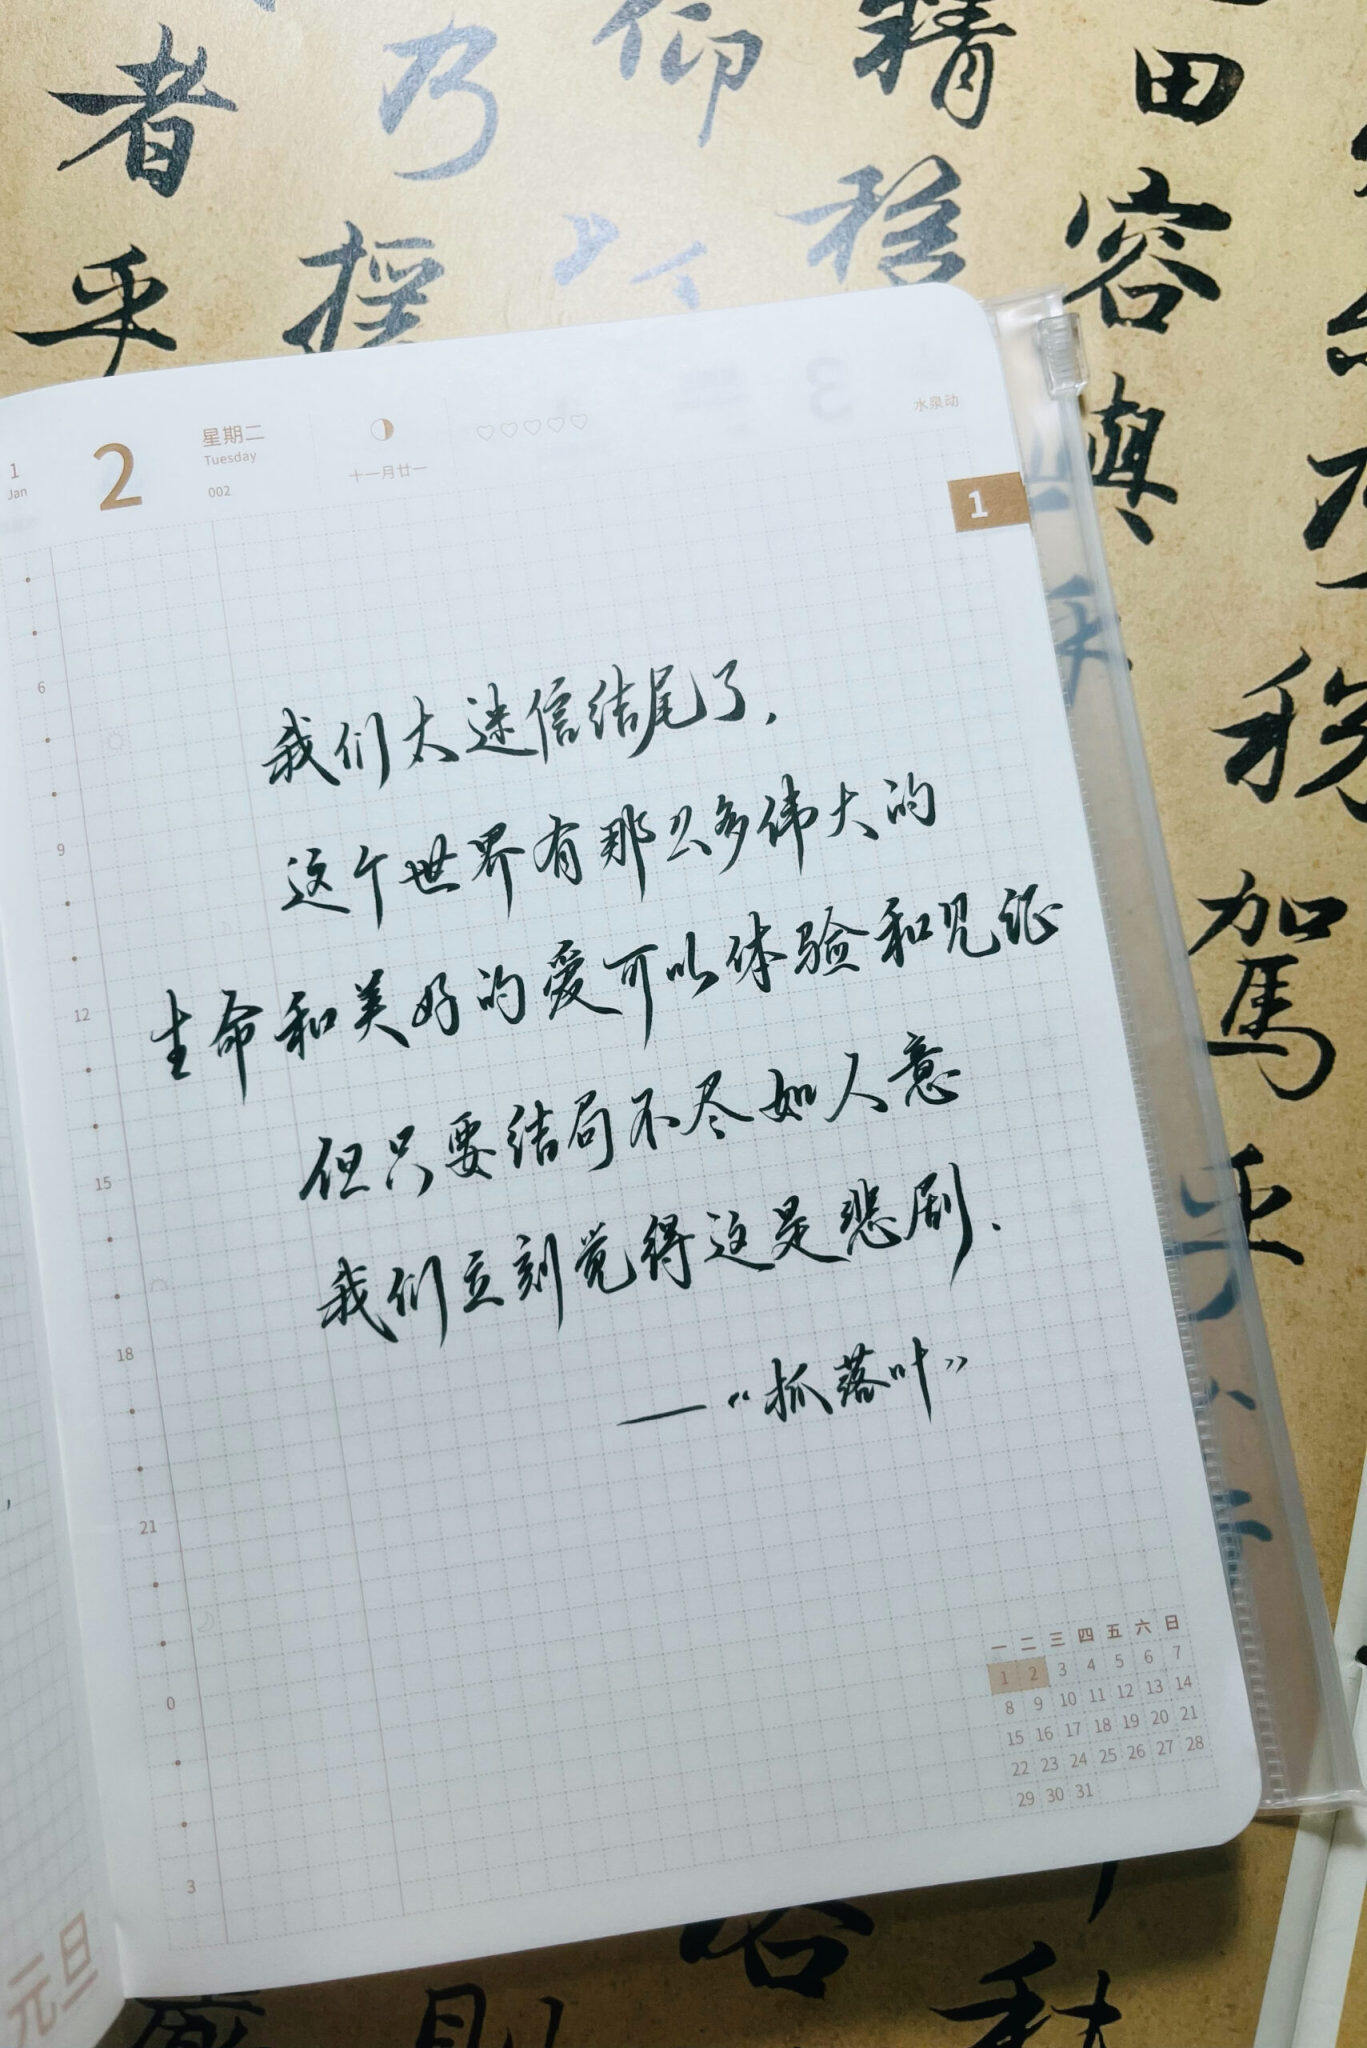 者
乎
乃
仰
精
田
容
與
稅
駕
乎
1
Jan
2
星期二
Tuesday
002
十一月廿一
水泉动
1
我们太迷信结尾了,
这个世界有那么多伟大的
生命和美好的爱可以体验和见证
但只要结局不尽如人意
我们立刻觉得这是悲剧.
—“抓落叶”
6
9
12
15
18
21
0
3
一 二 三 四 五 六 日
1 2 3 4 5 6 7
8 9 10 11 12 13 14
15 16 17 18 19 20 21
22 23 24 25 26 27 28
29 30 31
元旦